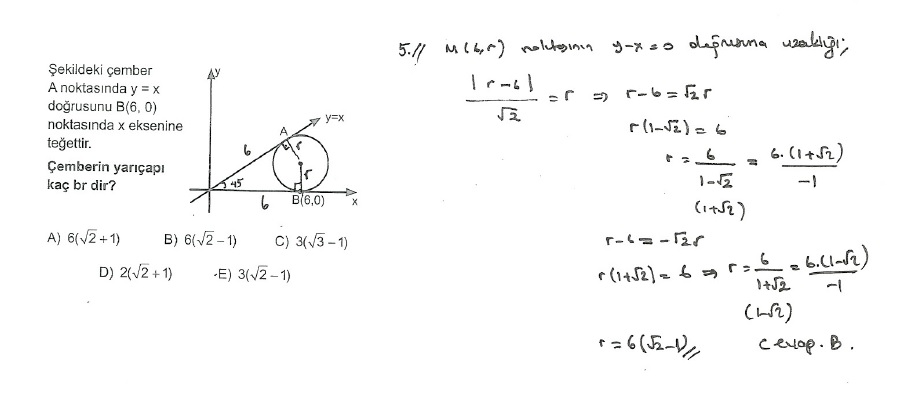 Şekildeki çember
A noktasında y = x
doğrusunu B(6, 0)
noktasında x eksenine
teğettir.
Çemberin yarıçapı
kaç br dir?
y
y=x
A
r
6
r
45
6
B(6,0)
x
A) 6(√2 + 1) B) 6(√2 − 1) C) 3(√3 − 1)
D) 2(√2 + 1) E) 3(√2 − 1)
5.// M(6,r) noktasının y-x=0 doğrusuna uzaklığı;
|r-6| / √2 = r ⇒ r-6 = √2 r
r(1-√2) = 6
r = 6 / (1-√2) = 6.(1+√2) / -1
(1+√2)
r-6 = -√2r
r(1+√2) = 6 ⇒ r = 6 / (1+√2) = 6.(1-√2) / -1
(1-√2)
r = 6(√2-1)// Cevap. B.